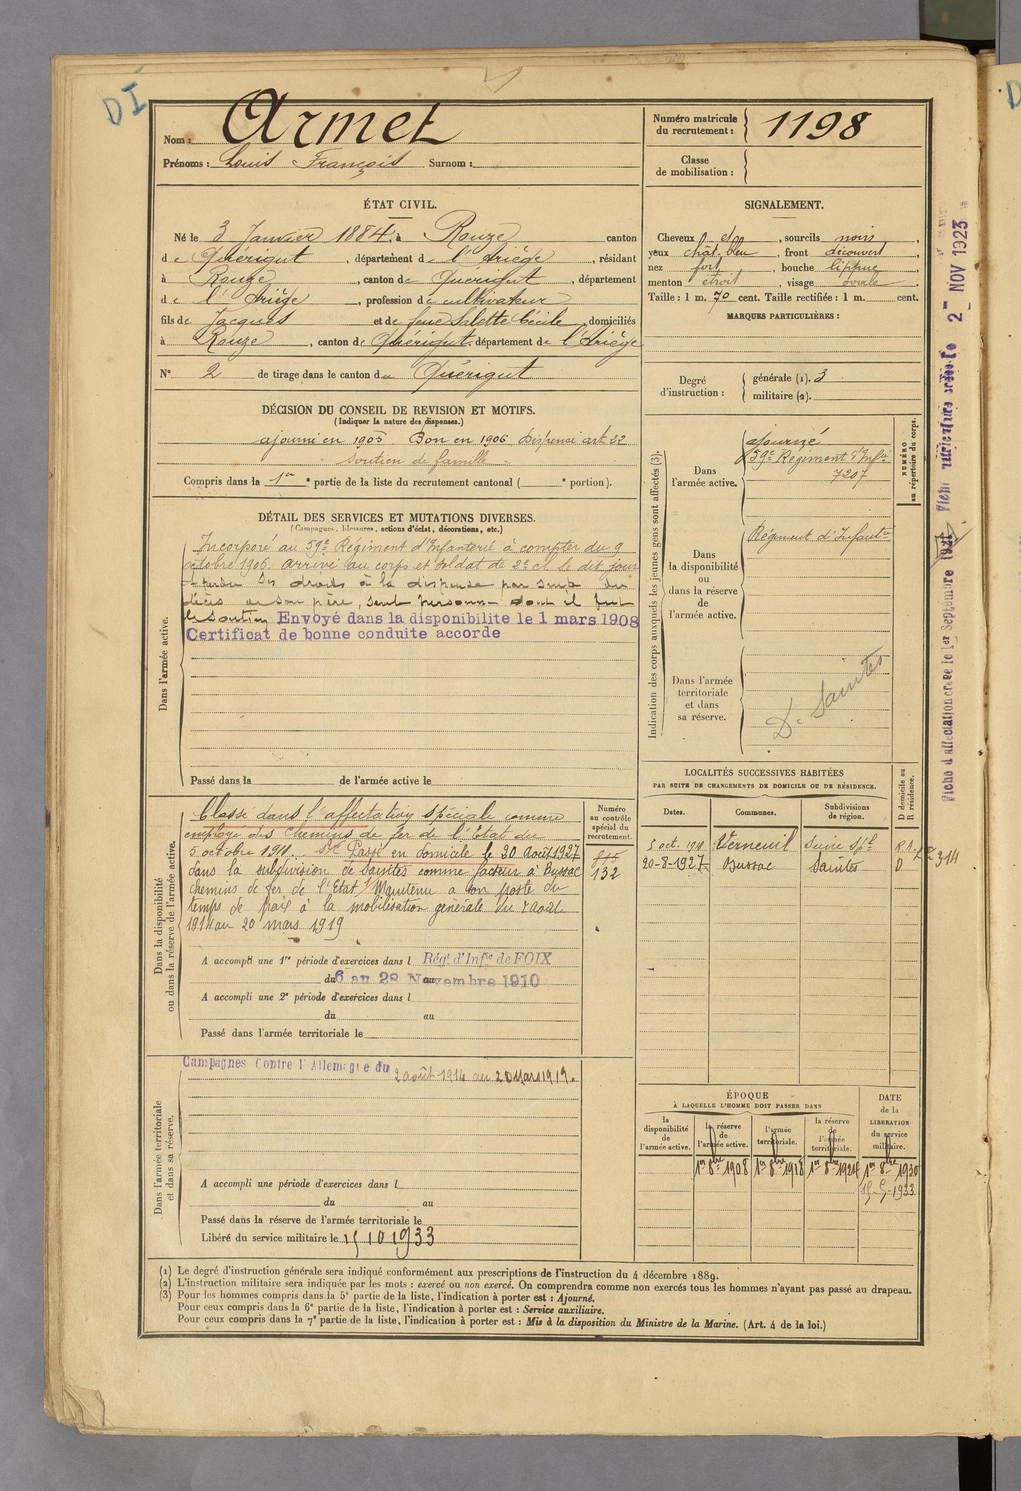 DI
Nom : Armet
Prénoms : Louis François Surnom :
Numéro matricule du recrutement : 1198
Classe de mobilisation :
ÉTAT CIVIL.
Né le 3 Janvier 1884, à Rouze canton
de Quérigut, département de l'Ariège, résidant
à Rouze, canton de Quérigut, département
de l'Ariège, profession de cultivateur
fils de Jacques et de feue Salotte Cécile, domiciliés
à Rouze, canton de Quérigut, département de l'Ariège
N° 2 de tirage dans le canton du Quérigut
SIGNALEMENT.
Cheveux, sourcils noirs,
yeux chât. bleu, front découvert,
nez fort, bouche lippue,
menton étroit, visage ovale.
Taille : 1 m. 70 cent. Taille rectifiée : 1 m. cent.
MARQUES PARTICULIÈRES :
Degré d'instruction : générale (1). 3
militaire (2).
DÉCISION DU CONSEIL DE REVISION ET MOTIFS.
(Indiquer la nature des dispenses.)
ajourné en 1905. Bon en 1906 Dispensé art 22
soutien de famille
Compris dans la 1re partie de la liste du recrutement cantonal ( e portion).
DÉTAIL DES SERVICES ET MUTATIONS DIVERSES.
(Campagnes, blessures, actions d'éclat, décorations, etc.)
Dans l'armée active.
Incorporé au 59e Régiment d'Infanterie à compter du 9
octobre 1906. Arrivé au corps et soldat de 2e cl. le dit jour
perdu ses droits à la dispense par suite du
décès de son père, seule personne dont il fut
le soutien Envoyé dans la disponibilite le 1 mars 1908
Certificat de bonne conduite accorde
Passé dans la de l'armée active le
Indication des corps auxquels les jeunes gens sont affectés (3).
NUMÉRO au répertoire du corps.
Dans l'armée active.
ajourné
59e Régiment d'Infie
7207
Dans la disponibilité ou dans la réserve de l'armée active.
Régiment d'Infanterie
Dans l'armée territoriale et dans sa réserve.
D. Saintes
Fiche d'affectation créée le 1er Septembre 1921
2 - NOV 1923
Dans la disponibilité ou dans la réserve de l'armée active.
Classé dans l'affectation spéciale comme
employé des chemins de fer de l'État du
5 octobre 1911. Passé en domicile le 20 Août 1927
dans la subdivision de Saintes comme facteur à Bussac
chemins de fer de l'Etat Maintenu à son poste du
temps de paix à la mobilisation générale du 2 août
1914 au 20 mars 1919
Numéro au contrôle spécial du recrutement.
815
132
A accompli une 1re période d'exercices dans l Régt d'Infie de FOIX
du 6 au 28 Novembre 1910
A accompli une 2e période d'exercices dans l
du au
Passé dans l'armée territoriale le
LOCALITÉS SUCCESSIVES HABITÉES
PAR SUITE DE CHANGEMENTS DE DOMICILE OU DE RÉSIDENCE.
Dates. Communes. Subdivisions de région. D domicile ou R résidence.
5 oct. 1911 Verneuil Seine Sple R.
20-8-1927 Bussac Saintes D
314
Dans l'armée territoriale et dans sa réserve.
Campagnes Contre l'Allemagne du 2 août 1914 au 20 Mars 1919.
A accompli une période d'exercices dans l
du au
Passé dans la réserve de l'armée territoriale le
Libéré du service militaire le 15 10 1933
ÉPOQUE
À LAQUELLE L'HOMME DOIT PASSER DANS
la disponibilité de l'armée active. la réserve de l'armée active. l'armée territoriale. la réserve de l'armée territoriale.
DATE de la LIBÉRATION du service militaire.
1er 8bre 1908 1er 8bre 1918 1er 8bre 1924 1er 8bre 1930
1933
(1) Le degré d'instruction générale sera indiqué conformément aux prescriptions de l'instruction du 4 décembre 1889.
(2) L'instruction militaire sera indiquée par les mots : exercé ou non exercé. On comprendra comme non exercés tous les hommes n'ayant pas passé au drapeau.
(3) Pour les hommes compris dans la 5e partie de la liste, l'indication à porter est : Ajourné.
Pour ceux compris dans la 6e partie de la liste, l'indication à porter est : Service auxiliaire.
Pour ceux compris dans la 7e partie de la liste, l'indication à porter est : Mis à la disposition du Ministre de la Marine. (Art. 4 de la loi.)